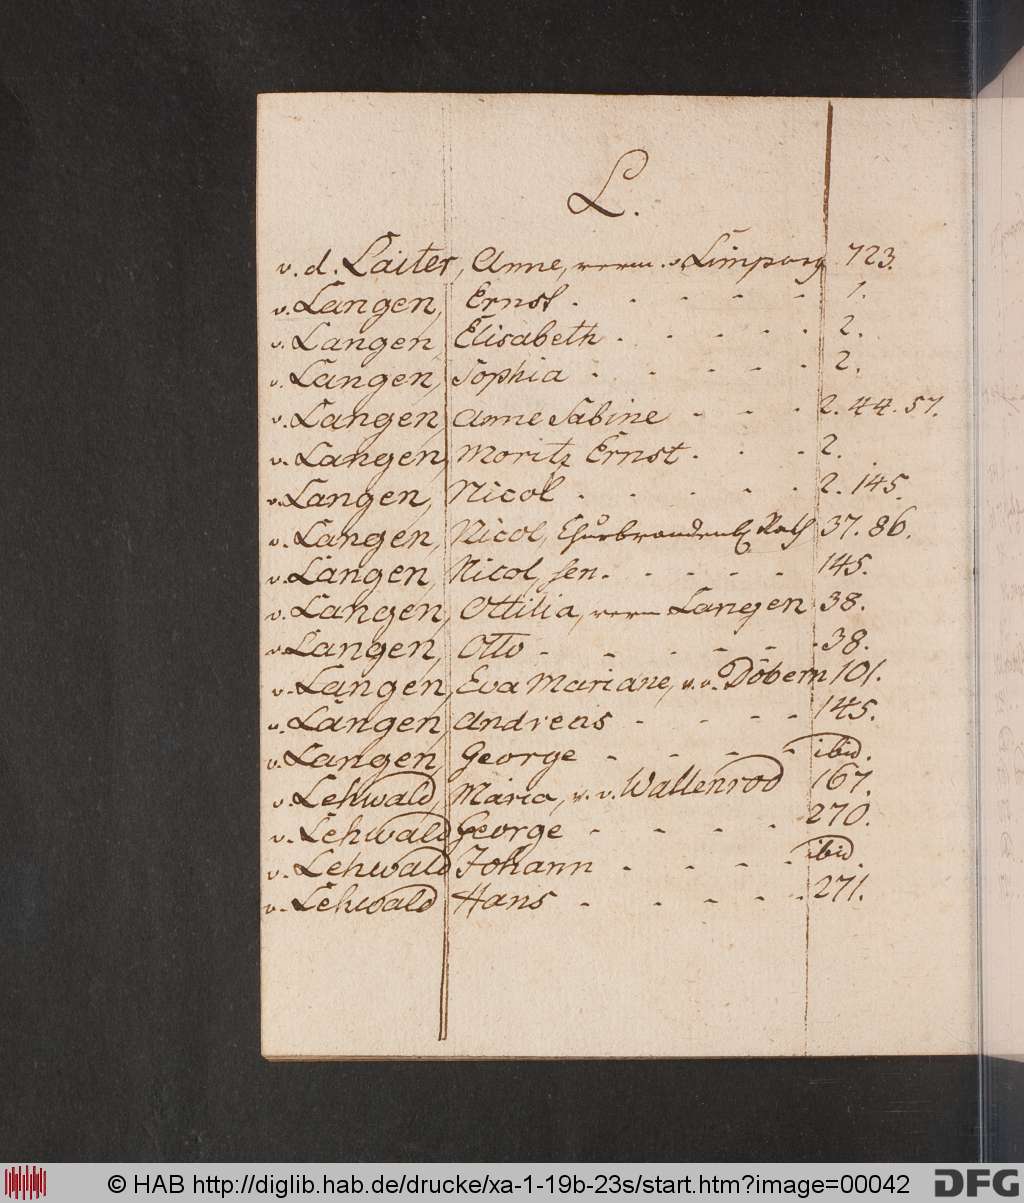 L.
v. d. Laiter, Anne, verm. v. Limpurg 723.
v. Langen, Ernst . - - - - - 1.
v. Langen, Elisabeth . - - - - 2.
v. Langen, Sophia - - - - - - 2.
v. Langen, Anne Sabine - - - 2. 44. 57.
v. Langen, Moritz Ernst . - - - 2.
v. Langen, Nicol . - - - - - 2. 145.
v. Langen, Nicol, Churbrandenb. Rath 37. 86.
v. Langen, Nicol, sen. - - - - 145.
v. Langen, Ottilia, verm Langen 38.
v. Langen, Otto - - - - - - 38.
v. Langen, Eva Mariane, v. v. Döbern 101.
v. Langen, Andreas - - - - 145.
v. Langen, George - - - - - ibid.
v. Lehwald, Maria, v. v. Wallenrod 167.
v. Lehwald George - - - - 270.
v. Lehwald Johann . - - - - ibid.
v. Lehwald Hans - - - - - 271.
© HAB http://diglib.hab.de/drucke/xa-1-19b-23s/start.htm?image=00042
DFG